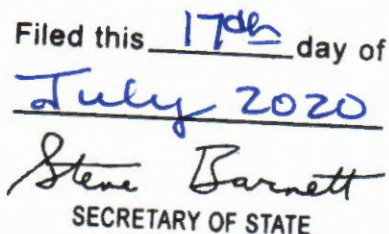 Filed this 17th day of
July 2020
Steve Barnett
SECRETARY OF STATE